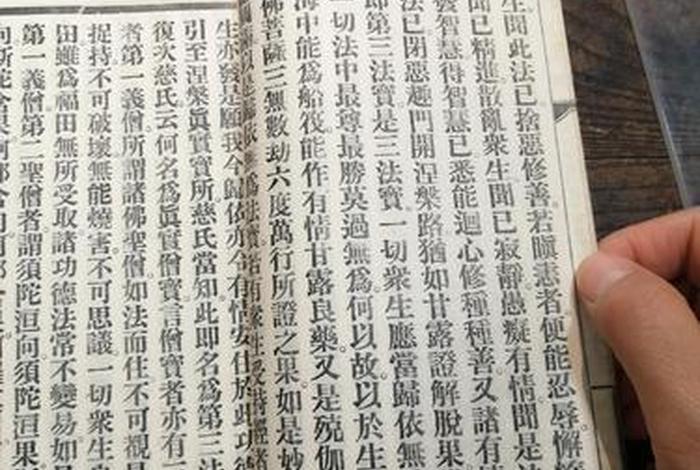 生聞此法已捨惡修善。若瞋恚者便能忍辱。懈
聞已精進散亂衆生聞已寂靜愚癡有情聞是
發智慧得智慧已悉能迴心修種種善又諸有
法已閉惡趣門開涅槃路猶如甘露證解脫果
即第三法寶是三法寶。一切衆生應當歸依無
一切法中最尊最勝莫過無爲。何以故。以於生
海中能爲船筏。能作有情甘露良藥。又是殑伽
佛菩薩三無數劫六度萬行所證之果如是妙
無爲法寶
生亦發是願我今歸依亦令有情安住於此功德
引至涅槃眞實寶所。慈氏當知此即名爲第三法
復次慈氏云何名爲眞實僧寶。言僧寶者亦有三
者第一義僧。所謂諸佛聖僧如法而住不可覩見
捉持不可破壞無能燒害。不可思議。一切衆生
田雖爲福田無所受取諸功德法常不變易如
第一義僧。第二聖僧者。謂須陀洹向須陀洹果